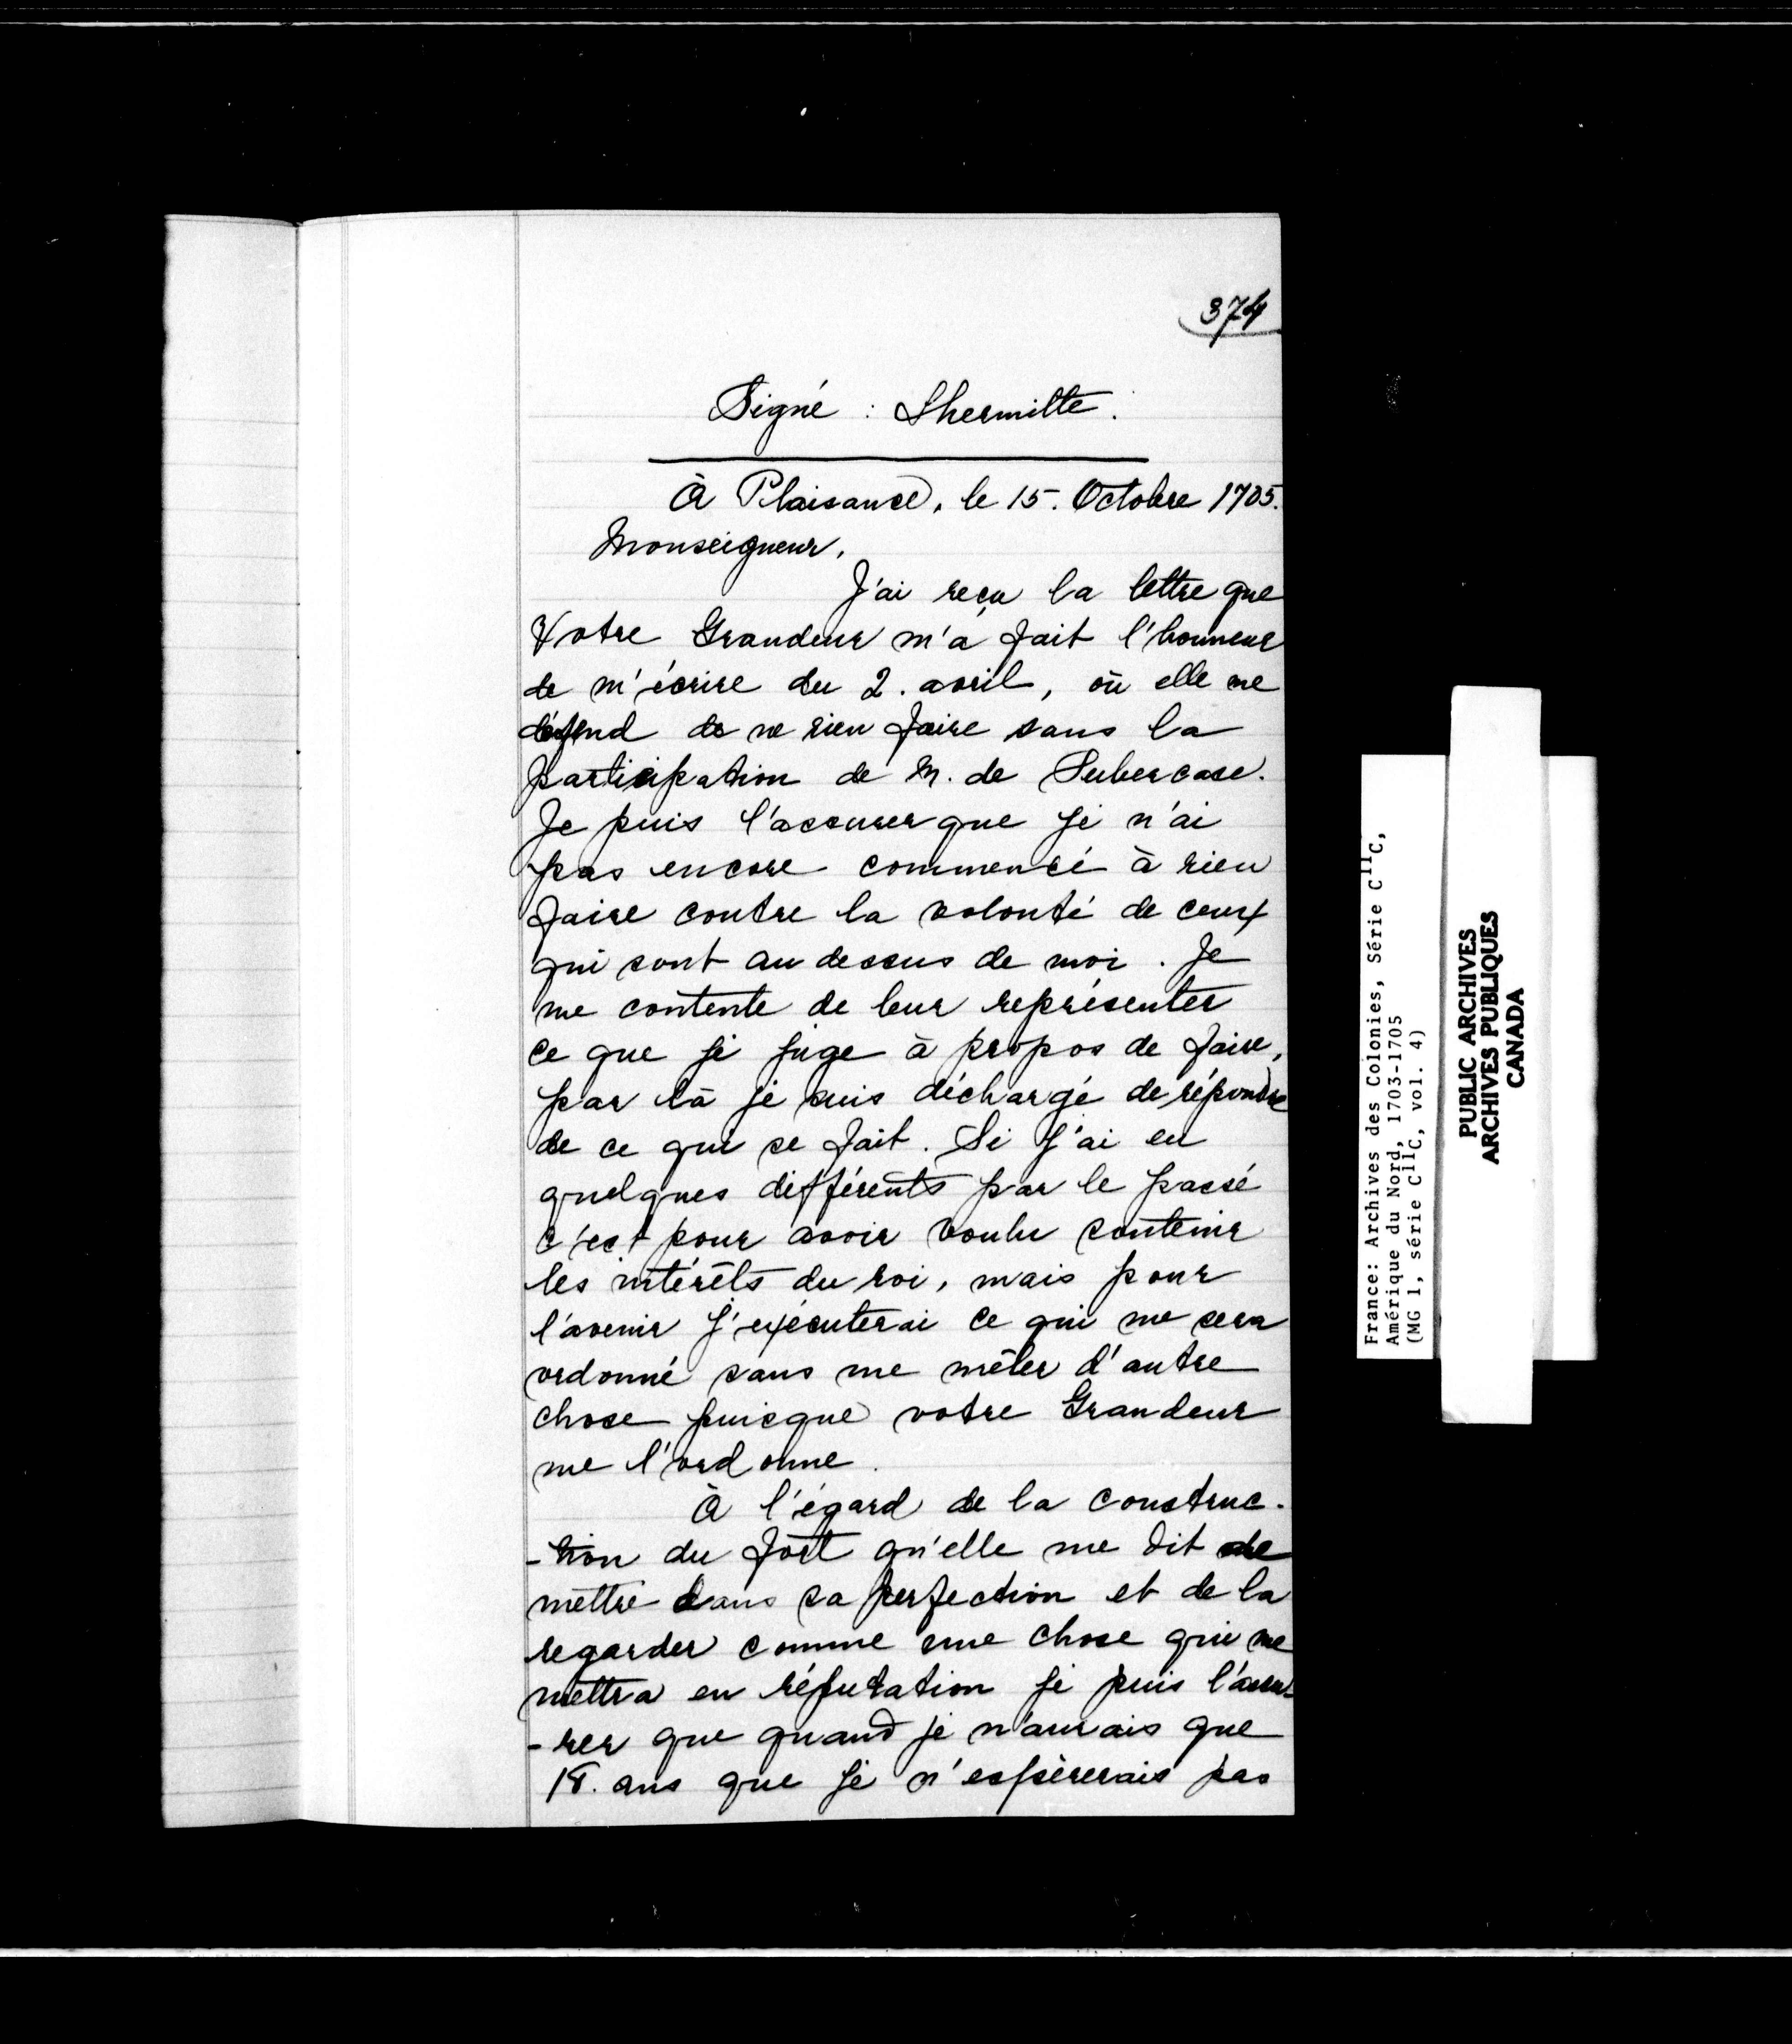 374
Signé : Lhermitte.
À Plaisance, le 15. Octobre 1705.
Monseigneur,
J'ai reçu la lettre que
Votre Grandeur m'a fait l'honneur
de m'écrire du 2. avril, où elle me
défend de ne rien faire sans la
participation de M. de Subercase.
Je puis l'assurer que je n'ai
pas encore commencé à rien
faire contre la volonté de ceux
qui sont au dessus de moi. Je
me contente de leur représenter
ce que je juge à propos de faire,
par là je suis déchargé de répondre
de ce qui se fait. Si j'ai eu
quelques différents par le passé
c'est pour avoir voulu soutenir
les intérêts du roi, mais pour
l'avenir j'exécuterai ce qui me sera
ordonné sans me mêler d'autre
chose puisque votre Grandeur
me l'ordonne.
À l'égard de la construc-
-tion du fort qu'elle me dit de
mettre dans sa perfection et de la
regarder comme une chose qui me
mettra en réputation je puis l'assu-
-rer que quand je n'aurais que
18. ans que je n'espèrerais pas
France: Archives des Colonies, Série C11C,
Amérique du Nord, 1703-1705
(MG 1, série C11C, vol. 4)
PUBLIC ARCHIVES
ARCHIVES PUBLIQUES
CANADA